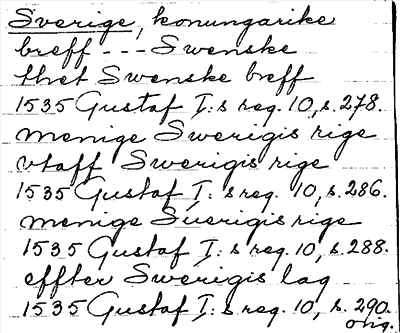 Sverige, konungarike
breff --- Swenske
thet Swenske breff
1535 Gustaf I:s reg. 10, s. 278.
menige Swerigis rige
vtaff Swerigis rige
1535 Gustaf I:s reg. 10, s. 286.
menige Suerigis rige
1535 Gustaf I:s reg. 10, s. 288.
effter Swerigis lag
1535 Gustaf I:s reg. 10, s. 290.
orig.